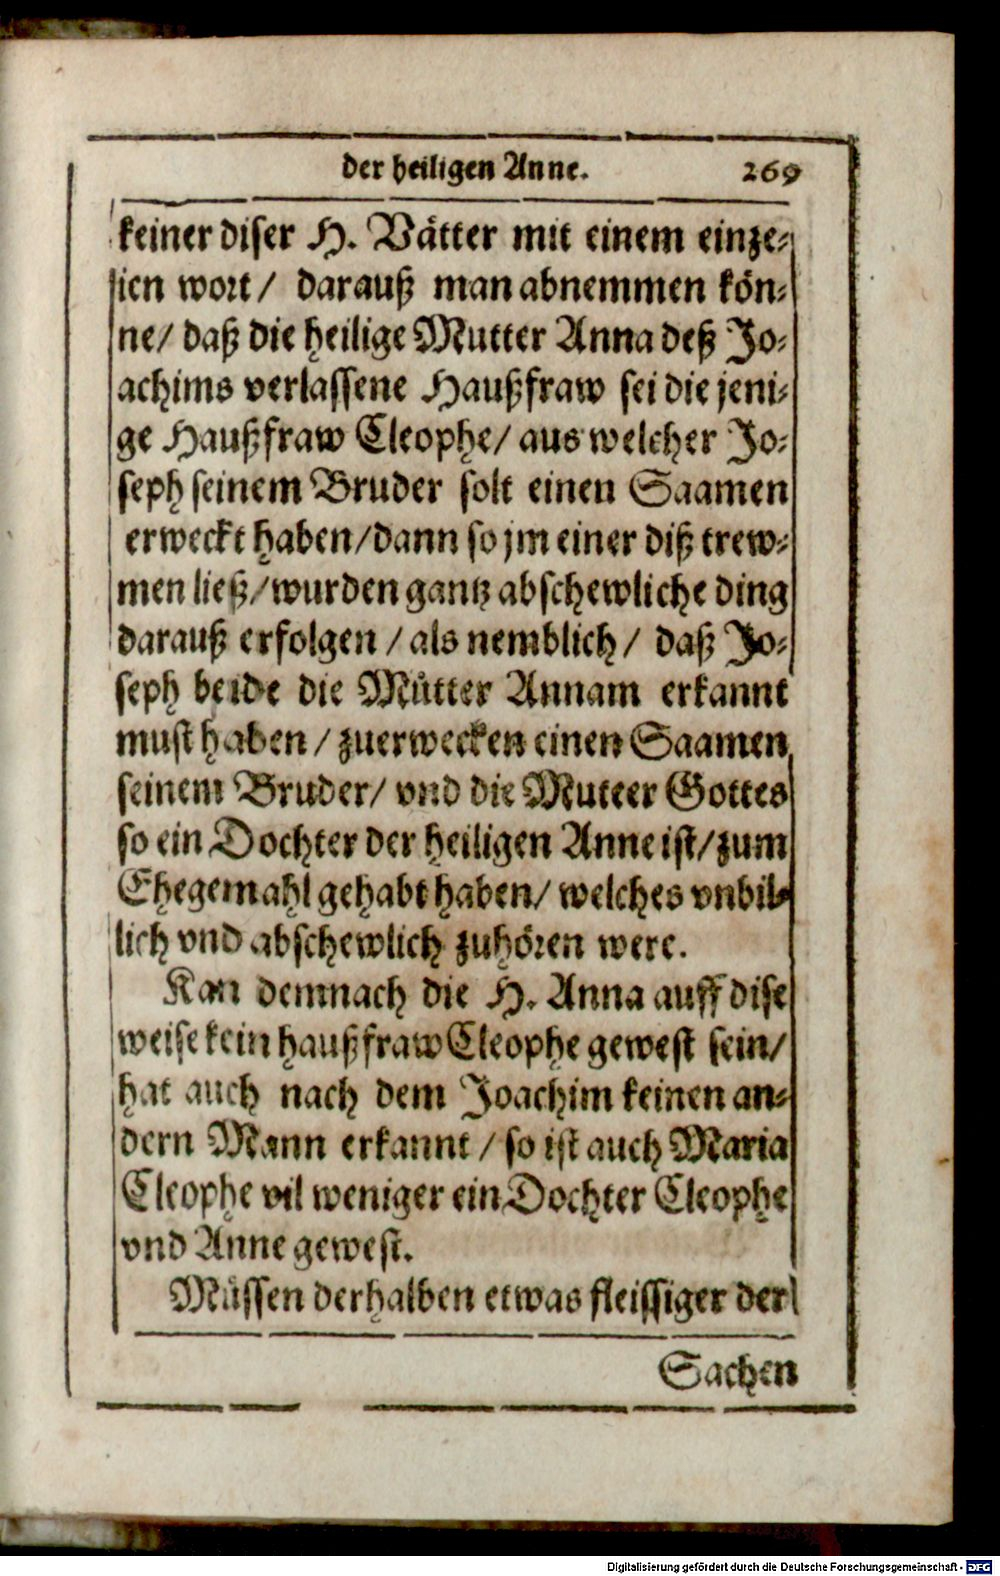 der heiligen Anne. 269
keiner diser H. Vätter mit einem einze-
len wort / darauß man abnemmen kön-
ne / daß die heilige Mutter Anna deß Jo-
achims verlassene Haußfraw sei die jeni-
ge Haußfraw Cleophe / aus welcher Jo-
seph seinem Bruder solt einen Saamen
erweckt haben / dann so jm einer diß trew-
men ließ / wurden gantz abschewliche ding
darauß erfolgen / als nemblich / daß Jo-
seph beide die Mütter Annam erkannt
must haben / zuerwecken einen Saamen
seinem Bruder / vnd die Muteer Gottes
so ein Dochter der heiligen Anne ist / zum
Ehegemahl gehabt haben / welches vnbil-
lich vnd abschewlich zuhören were.
Kan demnach die H. Anna auff dise
weise kein haußfraw Cleophe gewest sein /
hat auch nach dem Joachim keinen an-
dern Mann erkannt / so ist auch Maria
Cleophe vil weniger ein Dochter Cleophe
vnd Anne gewest.
Müssen derhalben etwas fleissiger der
Sachen
Digitalisierung gefördert durch die Deutsche Forschungsgemeinschaft - DFG